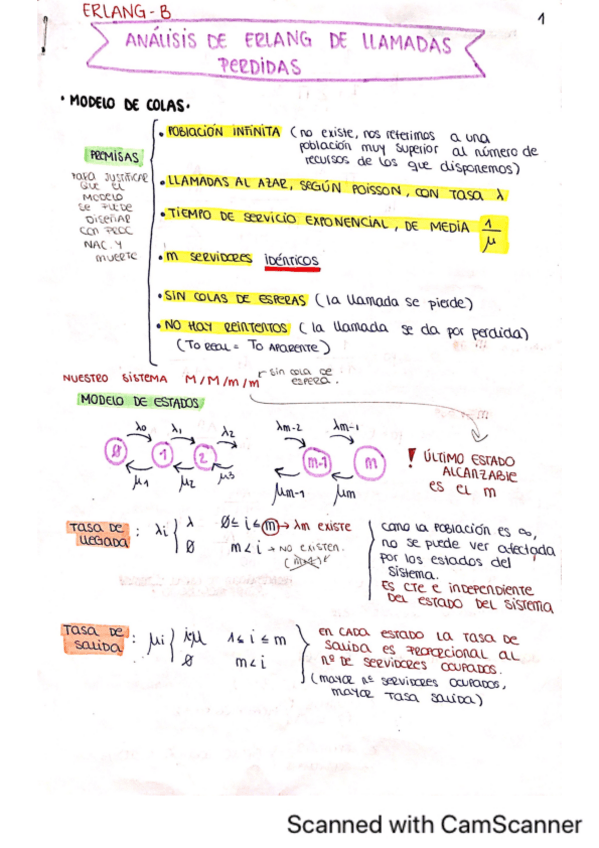 ERLANG-B
1
ANÁLISIS DE ERLANG DE LLAMADAS
PERDIDAS
• MODELO DE COLAS •
PREMISAS
PARA JUSTIFICAR
QUE EL
MODELO
SE PUEDE
DISEÑAR
CON PROC
NAC. Y
MUERTE
• POBLACIÓN INFINITA (no existe, nos referimos a una
población muy superior al número de
recursos de los que disponemos)
• LLAMADAS AL AZAR, SEGÚN POISSON, CON TASA λ
• TIEMPO DE SERVICIO EXPONENCIAL, DE MEDIA 1/μ
• m SERVIDORES IDÉNTICOS
• SIN COLAS DE ESPERAS (la llamada se pierde)
• NO HAY REINTENTOS (la llamada se da por perdida)
(TO REAL = TO APARENTE)
NUESTRO SISTEMA M/M/m/m
sin cola de
espera.
MODELO DE ESTADOS
λ0 λ1 λ2 λm-2 λm-1
Ø 1 2 m-1 m
μ1 μ2 μ3 μm-1 μm
! ÚLTIMO ESTADO
ALCANZABLE
es el m
TASA DE
LLEGADA : λi { λ Ø ≤ i ≤ m → λm EXISTE
Ø m < i → NO EXISTEN.
como la población es ∞,
no se puede ver afectada
por los estados del
sistema.
Es cte e independiente
del estado del sistema
TASA DE
SALIDA : μi { i·μ 1 ≤ i ≤ m
Ø m < i
en cada estado la tasa de
salida es proporcional al
nº de servidores ocupados.
(mayor nº servidores ocupados,
mayor tasa salida)
Scanned with CamScanner